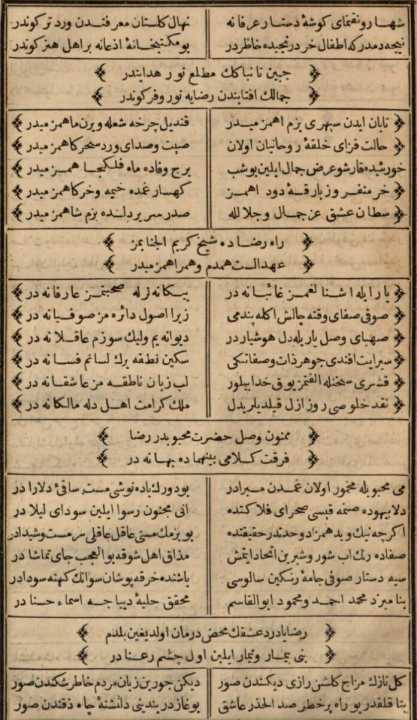 شهـا رونقنمای كوشهٔ دستار عرفانه نهال كلستان معرفتدن ورد تر كوندر
نیجه دمدر كه اطفال خرد رنجیده خاطر در بو مكتبخانهٔ اذعانه بر اهل هنر كوندر
جبین تابناكك مطلع نور هدایتدر
جمالك آفتابندن رضایه نور و فر كوندر
تابان ایدن سپهری بزم اهمز میدر قندیل چرخه شعله ویرن ماهمز میدر
حالت فزای خلقهٔ روحانیان اولان صیت وصدای ورد سحركاهمز میدر
خورشیده قارشو عرض جمال ایلین بو شب برج وفاده ماه فلكجاهمز میدر
كهسار غمده خیمه وخركاهمز میدر
سلطان عشق عز جمال وجلا لله صدر سریر دلده بزم شاهمز میدر
راه رضاده شیخ كریم الجنابمز
عهد الست همدم وهمراهمز میدر
یار ایله اشنا لغمز غائبانه در بیكانه لرله صحبتمز عارفانه در
صوفی صفای وقته چالش اكله پندمی زیرا اصول دائره مز صوفیانه در
صهبای وصل یار یله دل هوشیار در دیوانه یم ولیك سوزم عاقلانه در
سكین نطقه برك لسانم فسانه در
لب زبان ناطقه مز عاشقانه در
نقد خلوصی روز ازل قیلدیلر بدل ملك كرامت اهل دله مالكانه در
ممنون وصل حضرت محبوبدر رضا
فرقت كلامی بینمزده بهانه در
می محبو بله مخمور اولان غمدن مبرادر بودورك باده نوشی مست ساقیٔ دلارا در
دلا بیهوده صنمه قیسی صحرای فلاكتده انی مجنون رسوا ایلین سودای لیلا در
اكرچه نیك وبد همزاد وحدتدر حقیقتده بو بزمك مستی عاقل عاقلی سرمست وشیدا در
صفاده رنك اب شور وشیرین اتحاد ایتمش مذاق اهل شوقه بوالعجب جای تماشا در
سیه دستار صوفی جامهٔ رنكین سالوسی باشنده خرقه پوشان سوانك كهنه سودادر
بنامبزد محمد احمد ومحمود ابوالقاسم محقق حلیهٔ دیباجه اسماء حسنا در
رضایا درد عشقك محض درمان اولدیغین بلدم
بنی بیمار وتیمار ایلین اول چشم رعنا در
كل نازك مزاج كلشن رازی دیكندن صور دیكن جورین زبان مردم خاطر شكندن صور
بو راه پر خطر صد الحذر عاشق چاه ذقندن صور